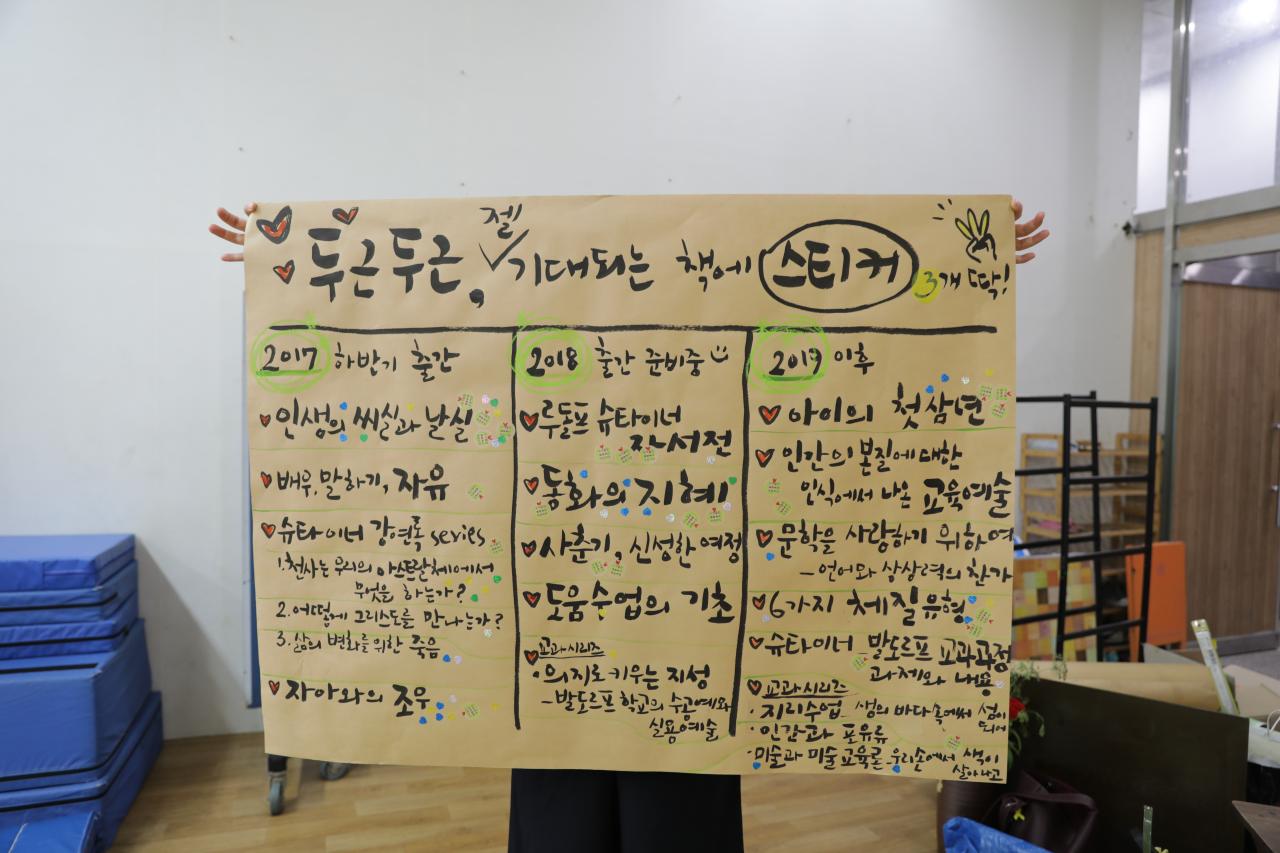 두근두근, 젤 기대되는 책에 스티커 3개 딱!
2017 하반기 출간
인생의 씨실과 날실
배우, 말하기, 자유
슈타이너 강연록 series
1. 천사는 우리의 아스트랄체에서
무엇을 하는가?
2. 어떻게 그리스도를 만나는가?
3. 삶의 변화를 위한 죽음
자아와의 조우
2018 출간 준비중
루돌프 슈타이너
자서전
동화의 지혜
사춘기, 신성한 여정
도움수업의 기초
교과시리즈
· 의지로 키우는 지성
- 발도르프 학교의 수공예와
실용예술
2019 이후
아이의 첫 삼년
인간의 본질에 대한
인식에서 나온 교육예술
문학을 사랑하기 위하여
- 언어와 상상력의 찬가
6가지 체질유형
슈타이너 발도르프 교과과정
과제와 내용
교과시리즈
· 지리수업 - 생의 바다속에서 섬이
되어
· 인간과 포유류
· 미술과 미술교육론 우리손에서 색이
살아나고